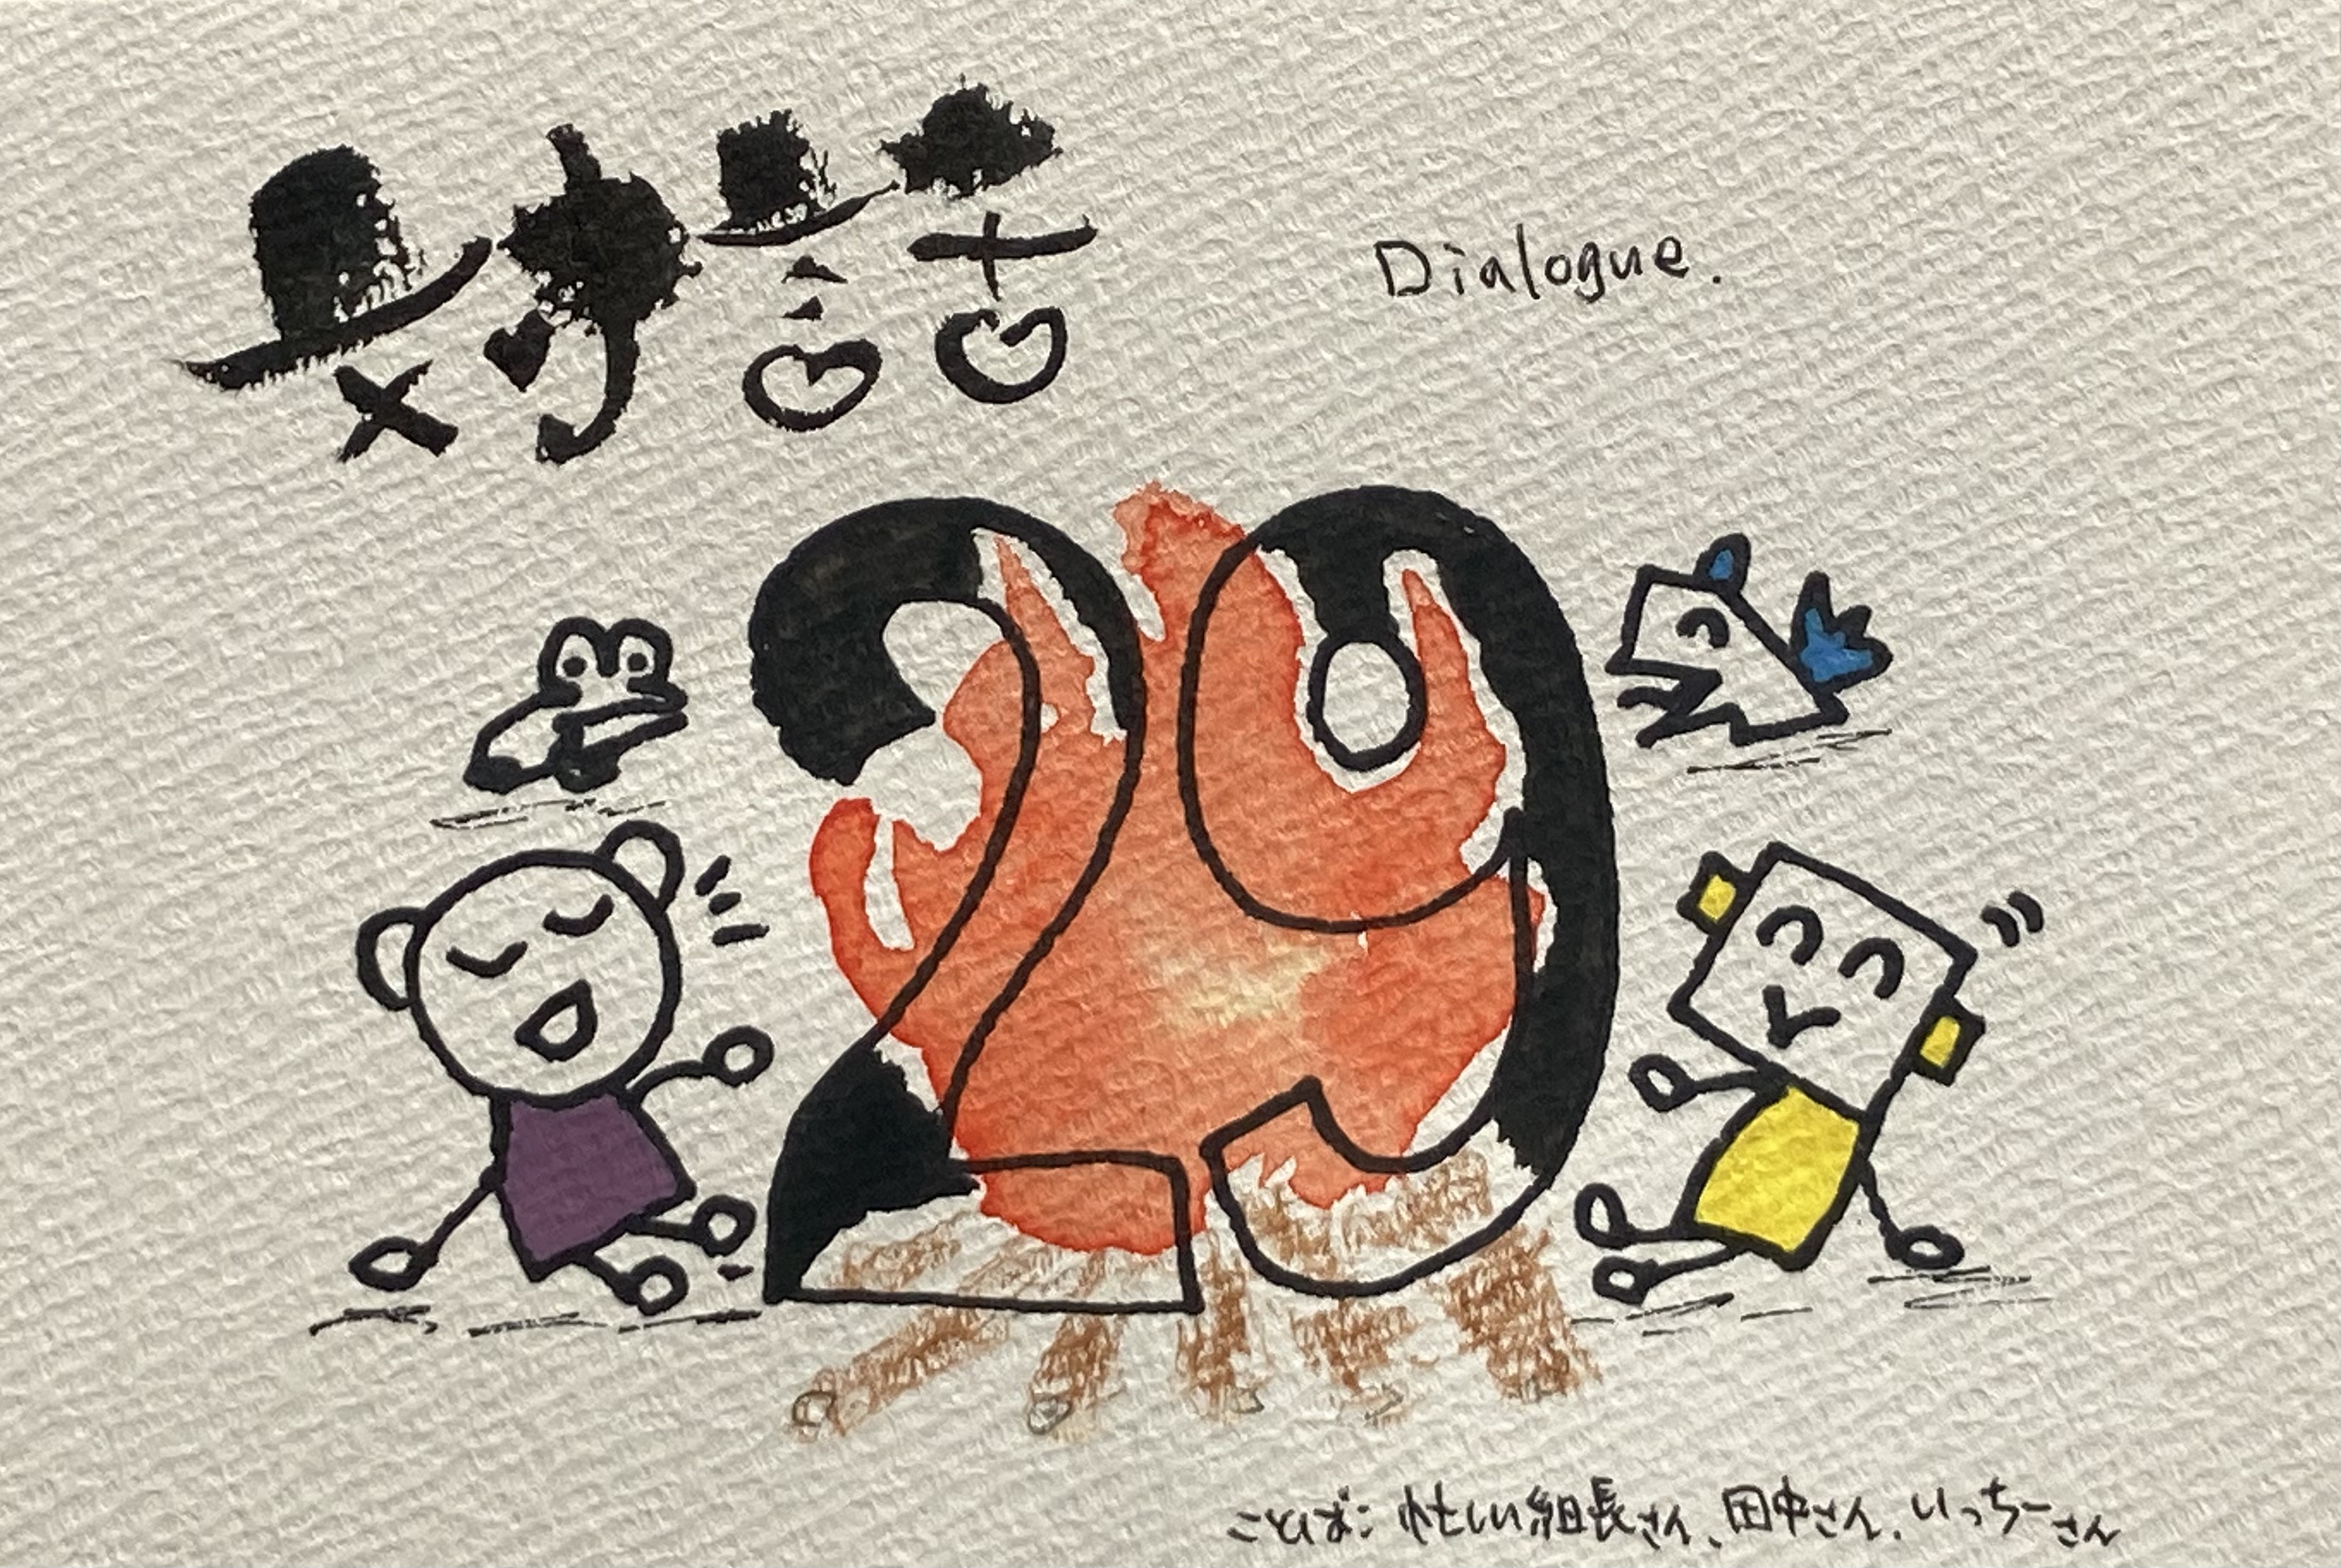 対話
Dialogue.
29
ことば：忙しい組長さん、田中さん、いっちーさん